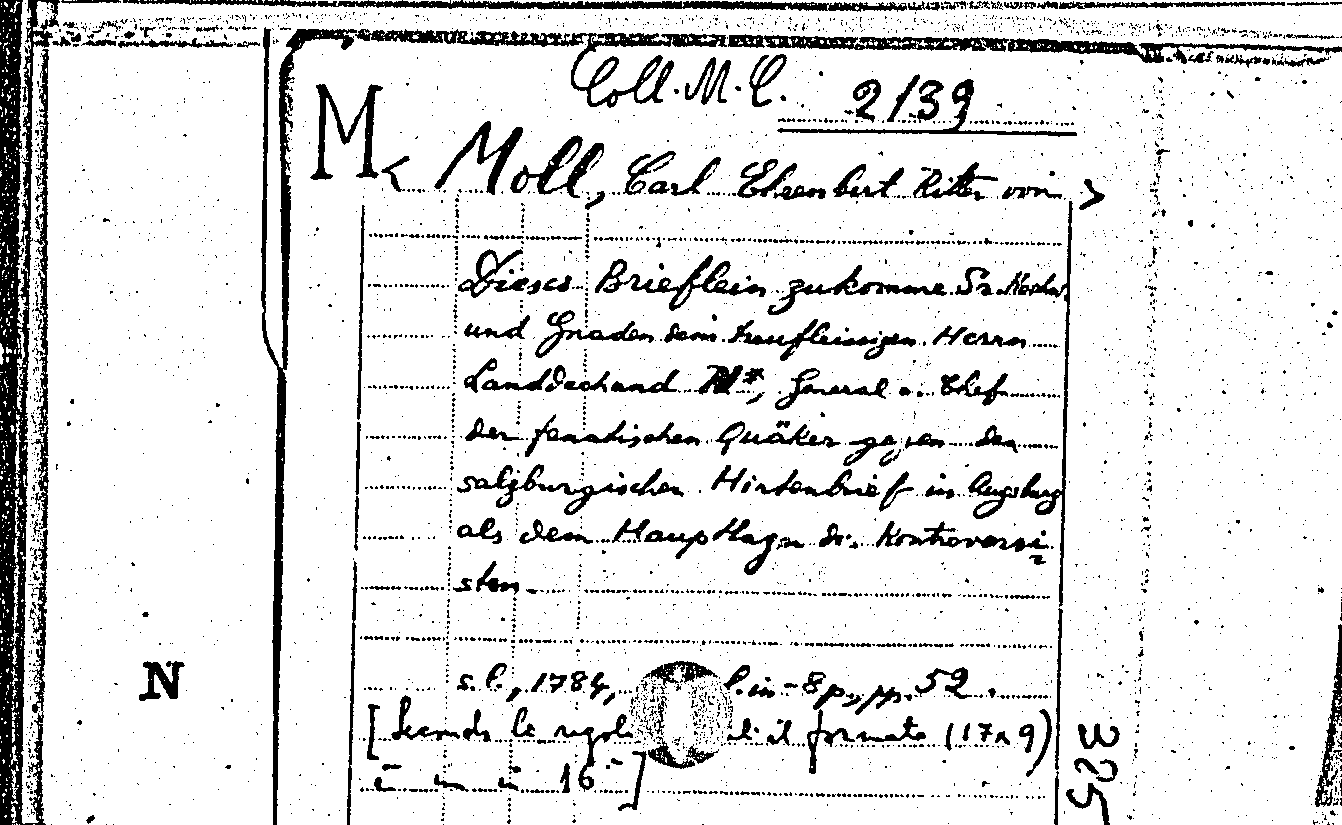 Coll. M. C. 2139
M < Moll, Carl Ehrenbert Ritter von >
Dieses Brieflein zukomme Sr. Hochw.
und Gnaden dem treufleissigen Herrn
Landdechand M*, General u. Chef
der fanatischen Quäker gegen den
salzburgischen Hirtenbrief in Augsburg
als dem Hauptlager der Kontroversi
sten.
N
s.l., 1784, in-8p., pp. 52.
[Secondo le il formato (17x9)
è un in 16°]
325